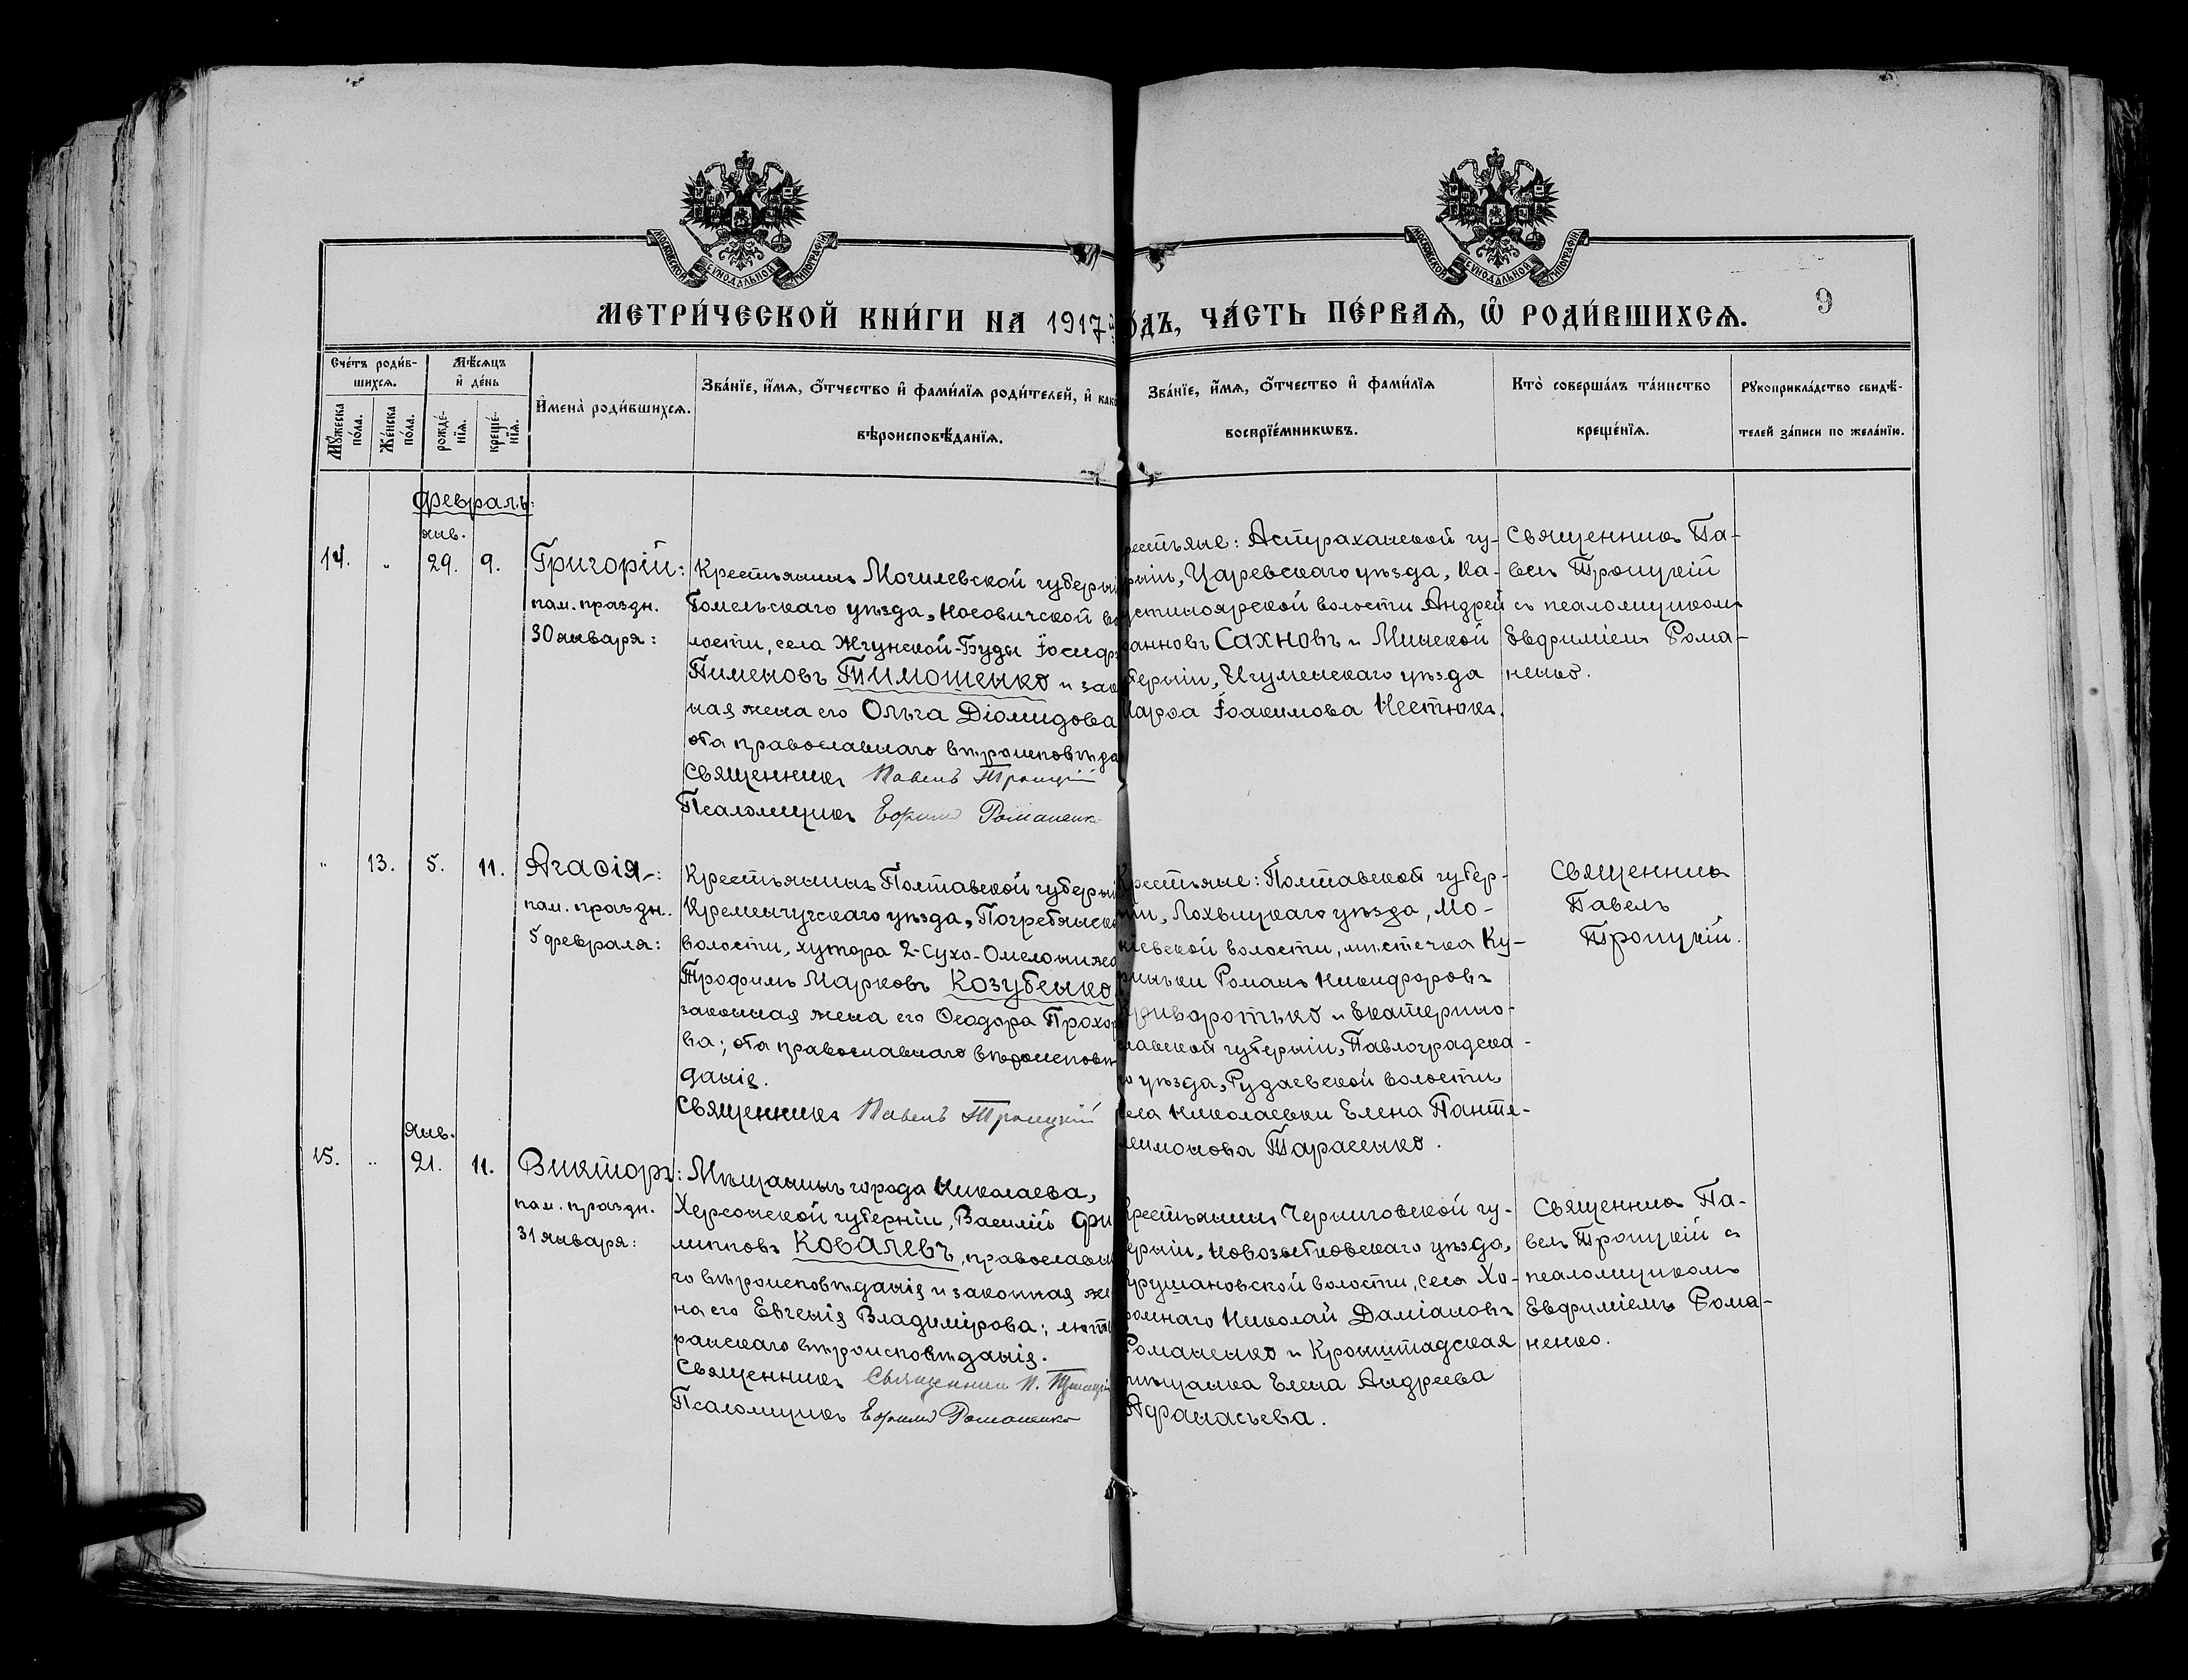 МОСКОВСКОЙ СѴНОДАЛЬНОЙ ТИПОГРАФІИ
МОСКОВСКОЙ СѴНОДАЛЬНОЙ ТИПОГРАФІИ
МЕТРИ́ЧЕСКОЙ КНИ́ГИ НА 1917 й
О́ДЪ, ЧА́СТЬ ПЕ́РВАѦ, Ѽ РОДИ́ВШИХСѦ.
9
Сче́тъ роди́в-
шихсѧ.
Мѣ́сѧцъ
и҆ де́нь
Мꙋ́жеска
по́ла.
Же́нска
по́ла.
рожде́-
нїѧ.
креще́-
нїѧ.
И҆мена̀ роди́вшихсѧ.
Зва́нїе, и҆́мѧ, ѻ҆́тчество и҆ фами́лїѧ роди́телей, и҆ как
вѣроисповѣ́данїѧ.
Зва́нїе, и҆́мѧ, ѻ҆́тчество и҆ фами́лїѧ
воспрїе́мникѡвъ.
Кто̀ соверша́лъ та́инство
креще́нїѧ.
Рꙋкоприкла́дство свидѣ́-
телей за́писи по жела́нїю.
Февраль:
янв.
14. " 29. 9.
Григорій:
пам. праздн.
30 января:
Крестьянинъ Могилевской губерні
Гомельскаго уѣзда, Носовичской во
лости, села Жгунской-Буды Іосифъ
Пименовъ Тимошенко и зак
ная жена его Ольга Діомидова
оба православнаго вѣроисповѣда
Священникъ Павелъ Троицкій
Псаломщикъ Ефимъ Романенк
рестьяне: Астраханской гу-
рніи, Царевскаго уѣзда, Ка-
устиноярской волости Андрей
оанновъ Сахновъ и Минской
берніи, Игуменскаго уѣзда
Марѳа Іоакимова Нестюкъ.
Священникъ Па-
велъ Троицкій
съ псаломщикомъ
Евфиміемъ Рома-
ненко.
" 13. 5. 11.
Агаѳія:
пам. праздн.
5 февраля:
Крестьянинъ Полтавской губерні
Кременчугскаго уѣзда, Погребянско
волости, хутора 2-Сухо-Омельник
Трофимъ Марковъ Козубенко
законная жена его Ѳеодора Прохор
ва; оба православнаго вѣроисповѣ
данія.
Священникъ Павелъ Троицкій
Крестьяне: Полтавской губер-
ніи, Лохвицкаго уѣзда, Мо-
кіевской волости, мѣстечка Ку-
риньки Романъ Никифоровъ
Криворотько и Екатерино-
славской губерніи, Павлоградска-
го уѣзда, Рудаевской волости
села Николаевки Елена Панте-
леимонова Тарасенко.
Священникъ
Павелъ
Троицкій.
янв.
15. " 21. 11.
Викторъ:
пам. праздн.
31 января:
Мѣщанинъ города Николаева,
Херсонской губерніи, Василій Фи
липповъ Ковалевъ, православна
го вѣроисповѣданія и законная же
на его Евгенія Владимірова; люте
ранскаго вѣроисповѣданія.
Священникъ Священник П. Троицкій
Псаломщикъ Ефимъ Романенко
Крестьянинъ Черниговской гу-
берніи, Новозыбковскаго уѣзда,
волости, села Хо-
ромнаго Николай Даміановъ
Романенко и Кронштадская
мѣщанка Елена Андреева
Афанасьева.
Священникъ Па-
велъ Троицкій съ
псаломщикомъ
Евфиміемъ Рома-
ненко.